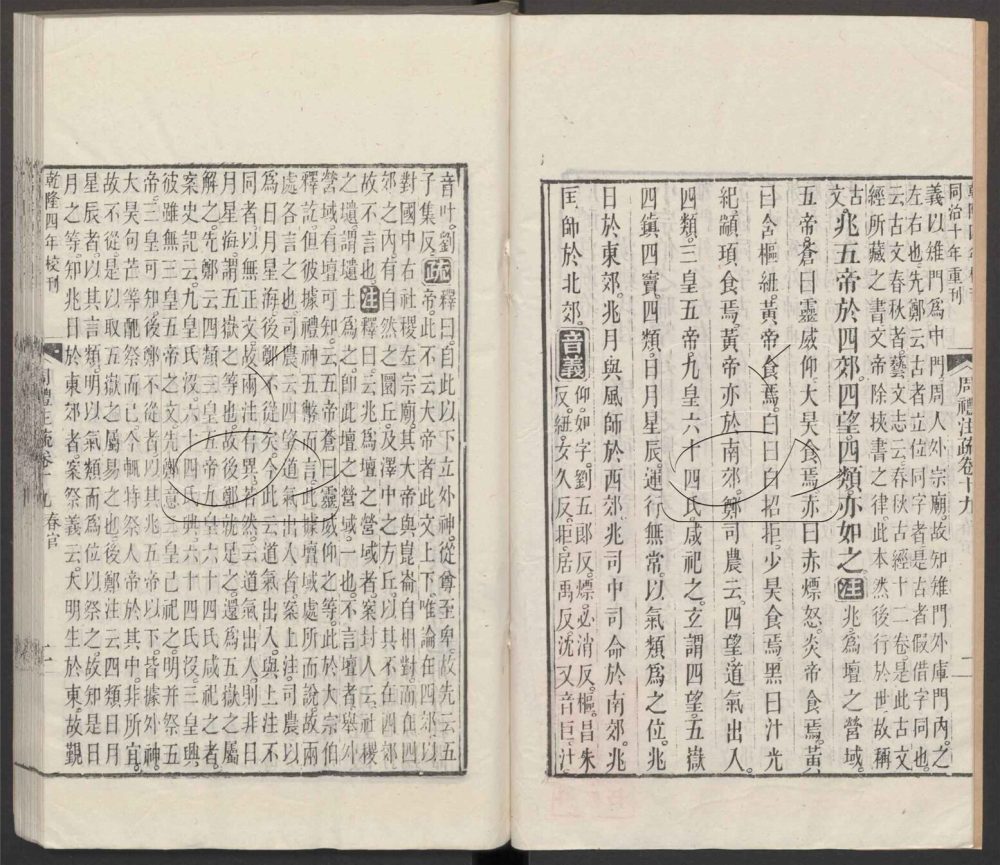 同治十年重刊
周禮注疏卷十九
一
義以雉門爲中門周人外宗廟故知雉門外庫門内之
左右也。先鄭云古者立位同字者是古者假借字同也。
云古文春秋者藝文志云春秋古經十二卷是此古文
經所藏之書文帝除挾書之律此本然後行於世故稱
古文
兆五帝於四郊。四望。四類亦如之。注兆爲壇之營域
五帝。蒼曰靈威仰。大昊食焉。赤曰赤熛怒。炎帝食焉。黃
曰含樞紐。黃帝食焉。白曰白招拒。少昊食焉。黑曰汁光
紀顓頊食焉。黃帝亦於南郊。鄭司農云。四望道氣出入。
四類。三皇五帝。九皇六十四氏咸祀之。玄謂四望。五嶽
四鎮四竇。四類。日月星辰。運行無常。以氣類爲之位。兆
日於東郊。兆月與風師於西郊。兆司中司命於南郊。兆
雨師於北郊。音義
仰如字劉五郎反。熛必消反。樞昌朱
反。紐女久反。拒居禹反沈又音巨。汁
音叶劉
子集反
疏釋曰。自此以下立外神。從尊至卑。故先云五
帝。此不云大帝者。此文上下。唯論在四郊。以
對國中右社稷左宗廟。其大帝與崑崙自相對。而在四
郊之内。有自然之圜丘。及澤中之方丘。以其不在四郊
故不言也。注釋曰。云兆爲壇之營域者。案封人云社稷
之壝。謂壝土爲之。卽此壇之營域。一也。不言壇者。舉外
營域有壇可知。云五帝蒼曰靈威仰之等。此於大宗伯
釋訖。但彼據禮神玉幣而言。此據壇域處所而說。故兩
處各言之也。司農云四望道氣出入者。案上注。司農以
爲日月星海。後鄭不從矣。今此云道氣出入。與上注不
同者。以無正文。故兩注有異。若然。云道氣出入。則非日
月星海。謂五嶽之等也。故後鄭就足之。還爲五嶽之屬
解之。先鄭云四類三皇五帝九皇六十四氏咸祀之者。
案史記云。九皇氏沒。六十四氏興。六十四氏沒。三皇興。
彼雖無三皇五帝之文。先鄭意三皇已祀之。明并祭五
帝。三皇可知。後鄭不從者。以其兆五帝以下。皆據外神。
大昊句芒等配祭而已。今輒特祭人帝於其中。非所宜。
故不從。是以取五嶽之屬易之也。後鄭注云四類日月
星辰者。以其言類。明以氣類而爲位以祭之。故知是日
月之等。知兆日於東郊者。案祭義云。大明生於東。故覲
乾隆四年校刊
周禮注疏卷十九 春官